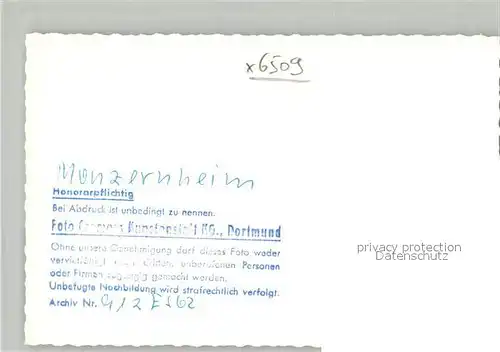 x6509
Monzernheim
Honorarpflichtig
Bei Abdruck ist unbedingt zu nennen.
Foto Cramers Kunstanstalt KG., Dortmund
Ohne unsere Genehmigung darf dieses Foto weder
vervielfältigt noch dritten, unberufenen Personen
oder Firmen zugängig gemacht werden.
Unbefugte Nachbildung wird strafrechtlich verfolgt.
Archiv Nr.
privacy protection
Datenschutz